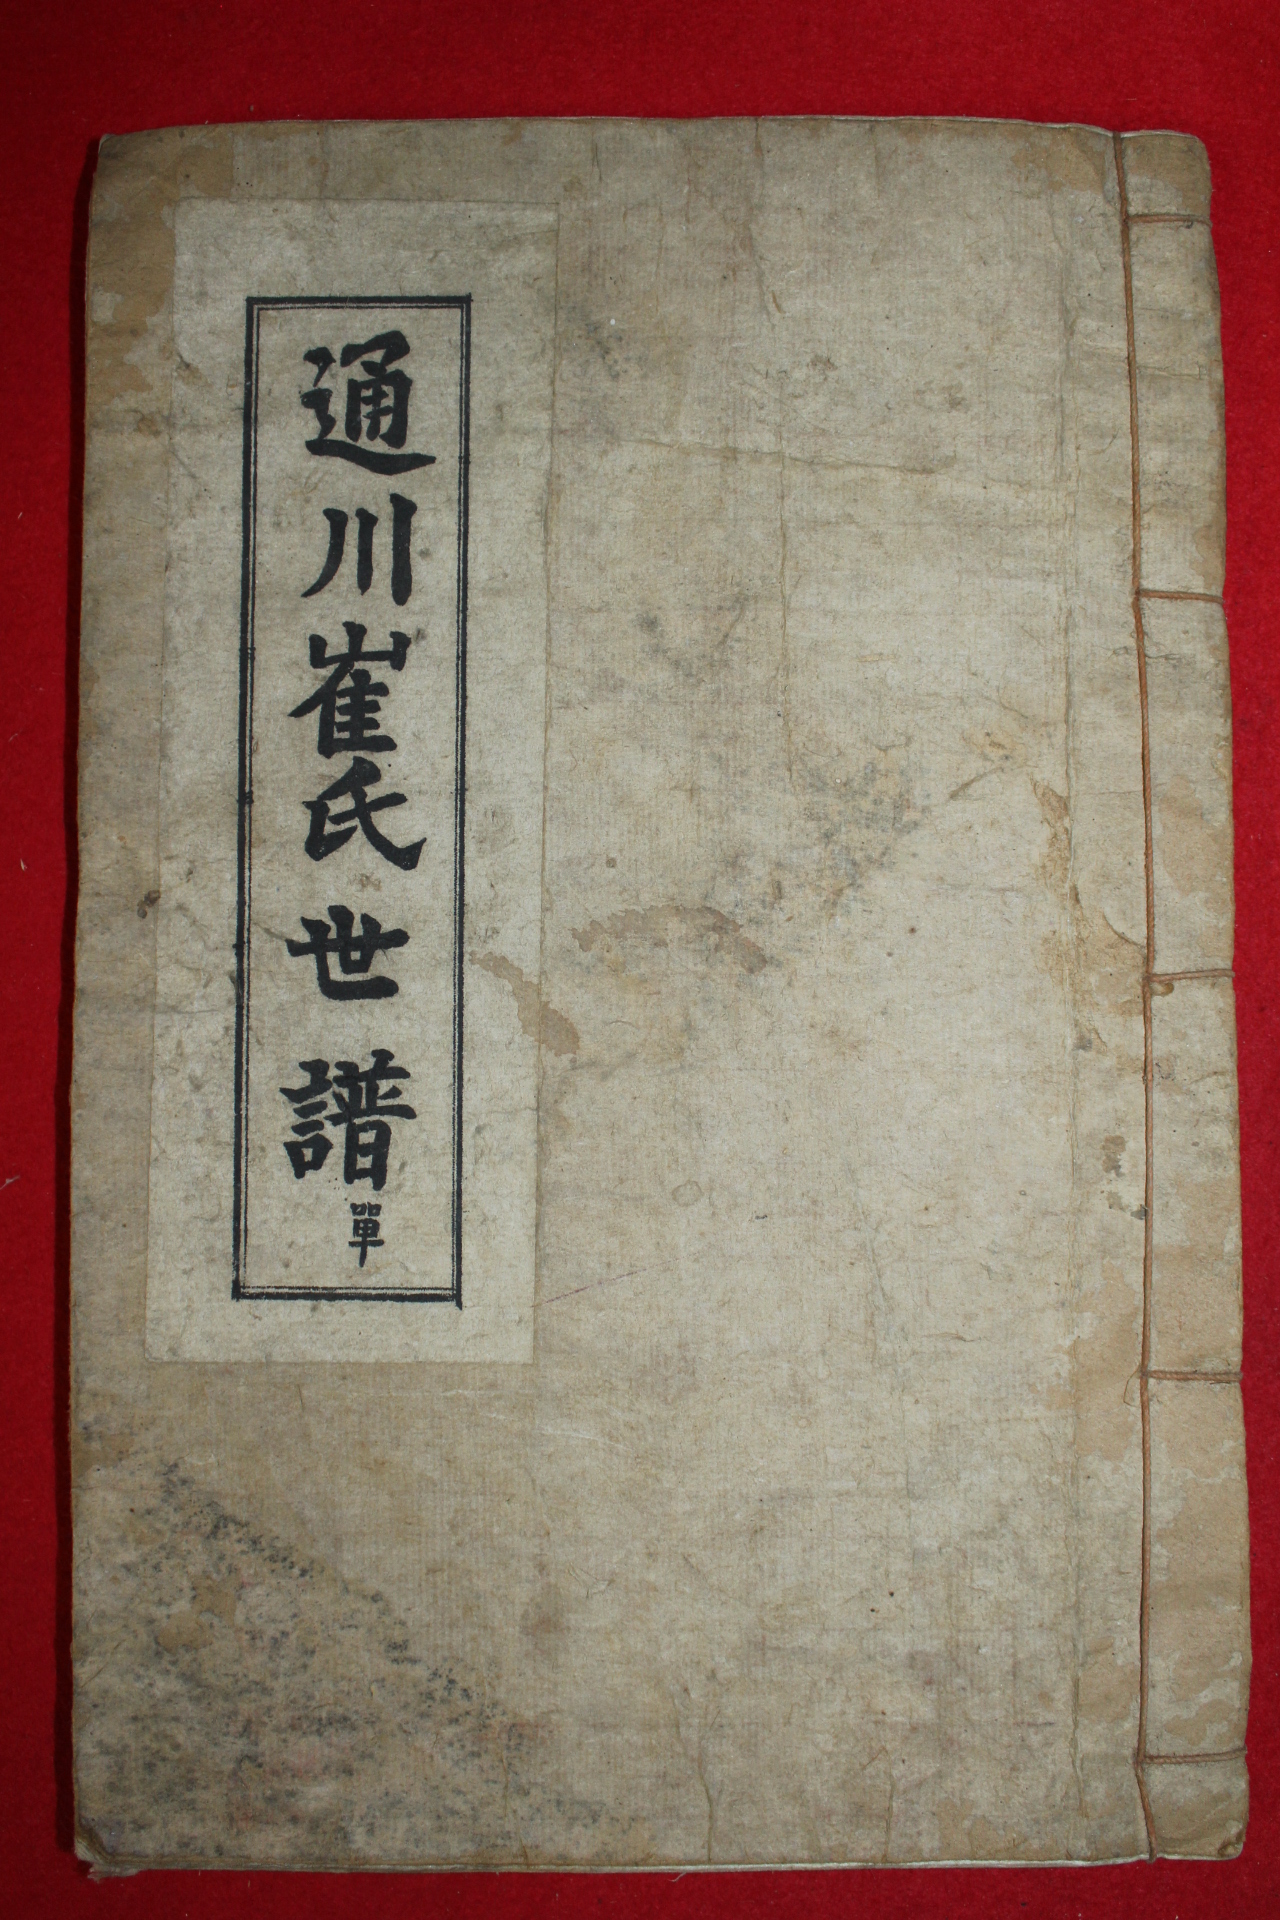 通川崔氏世譜 單